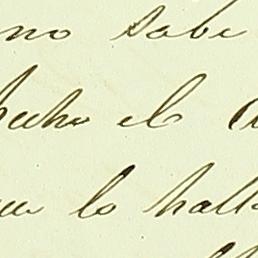 no sabe
hecho el
que lo hall